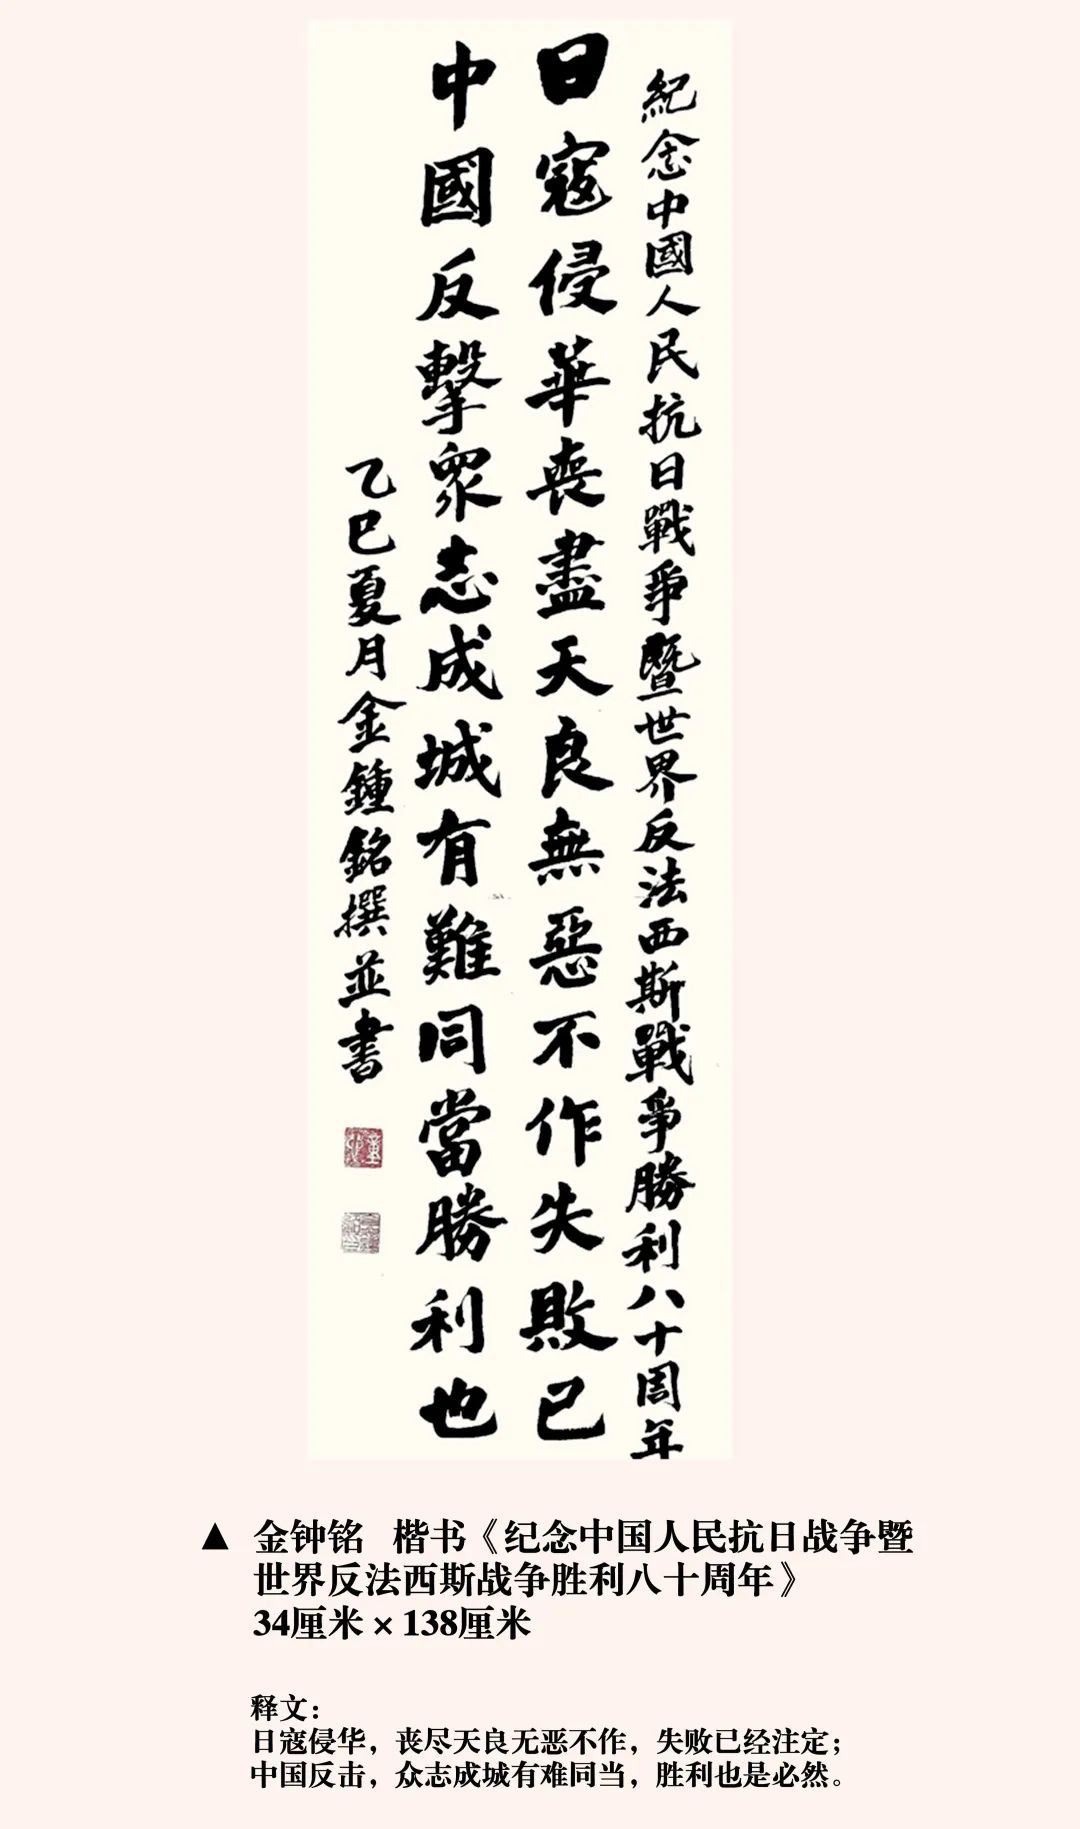 紀念中國人民抗日戰爭暨世界反法西斯戰爭勝利八十周年
日寇侵華喪盡天良無惡不作失敗已
中國反擊眾志成城有難同當勝利也
乙巳夏月金鍾銘撰並書
▲ 金钟铭 楷书《纪念中国人民抗日战争暨
世界反法西斯战争胜利八十周年》
34厘米×138厘米
释文：
日寇侵华，丧尽天良无恶不作，失败已经注定；
中国反击，众志成城有难同当，胜利也是必然。